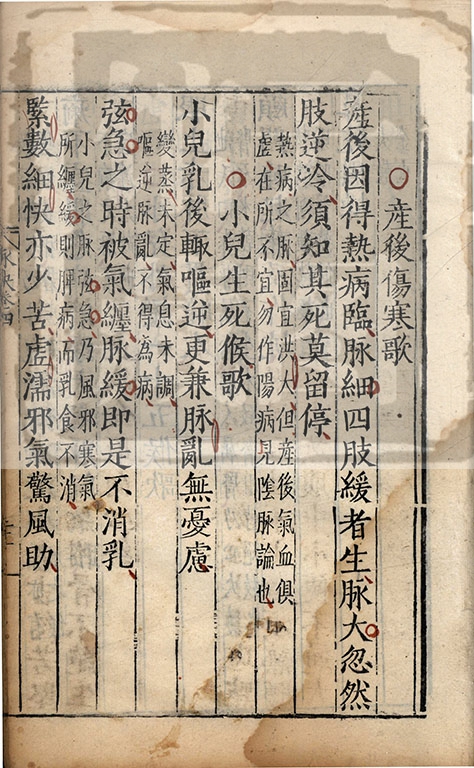 ○產後傷寒歌
產後因得熱病臨脉細四肢緩者生脉大忽然
肢逆冷須知其死莫留停
熱病之脉固宜洪大但產後氣血俱
虛在所不宜勿作陽病見陰脉論也
○小兒生死候歌
小兒乳後輙嘔逆更兼脉亂無憂慮
變蒸未定氣息未調
嘔逆脉亂不得為病
弦急之時被氣纏脉緩即是不消乳
小兒之脉弦急乃風邪寒氣
所纏緩則脾病而乳食不消
緊數細快亦少苦虛濡邪氣驚風助